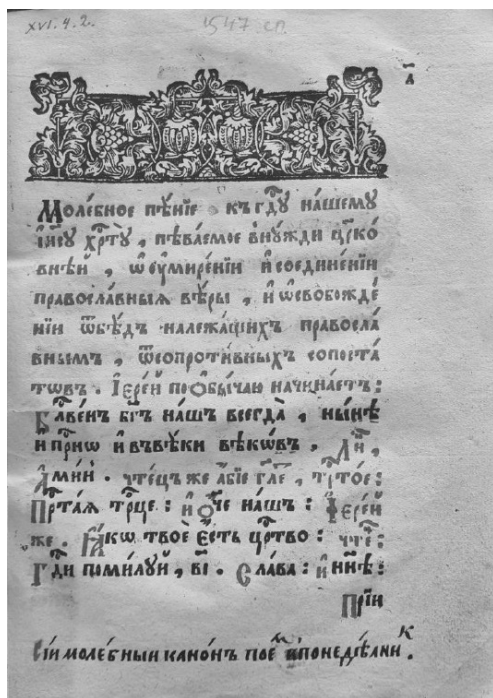 XVI. 4. 2.
1547 сп.
а҃
Моле́бное пѣ́нїе къ гдⷭ҇ꙋ на́шемꙋ
і҆и҃сꙋ хрⷭ҇тꙋ̀, пѣва́емое в̾нꙋ́жди цр҃ко́
внѣй, ѡ҆ᲂу҆мире́нїи и҆соедине́нїи
правосла́вныѧ вѣ́ры, и҆ѡ҆свобожде́
нїи ѿбѣ́дъ належа́щихъ правосла́
внымъ, ѿсопроти́вныхъ сопоста́
тѡвъ. І҆ере́й поѻ҆бы́чаю начина́етъ:
Бл҃ве́нъ бг҃ъ на́шъ всегда̀, ны́нѣ
и҆при́снѡ и҆въвѣ́ки вѣкѡ́въ, Ли́къ,
А҆ми́нь. чте́цъ же а҆́бїе гл҃е, трⷭ҇то́е:
Прⷭ҇та́ѧ трⷪ҇це: и҆ ѻ҆́ч҃е на́шъ: І҆ере́й
же. Ꙗ҆́кѡ твоѐ є҆́сть црⷭ҇тво: чте́ц:
Гдⷭ҇и поми́лꙋй, в҃і. Сла́ва: и҆ нн҃ѣ:
Прїи
Сїи молебныи кано́нъ поеⷨ впонедѣ́лниⷦ.